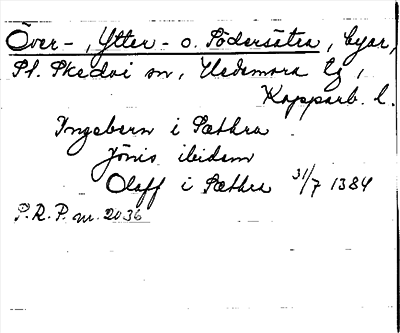 Över-, Ytter- o. Södersätra, byar,
St. Skedvi sn, Hedemora tg,
Kopparb. l.
Ingebern i Sæthra
Jönis ibidem
Olaff i Sæthra 31/7 1384
P.R.P. nr. 2036